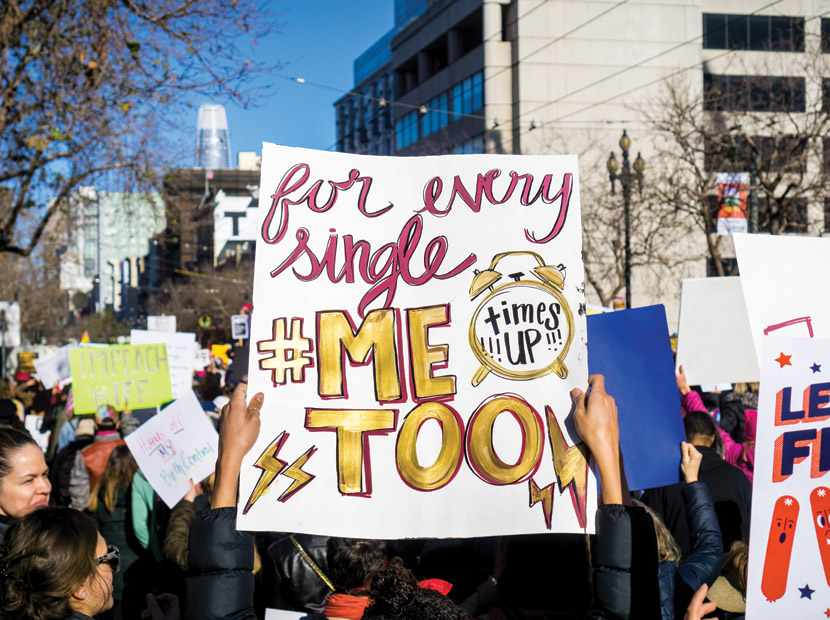 for every
single
#ME
TOO
times
!!!UP!!!
IMPEACH
Hands off
MY
Birth Control
LE
F
T